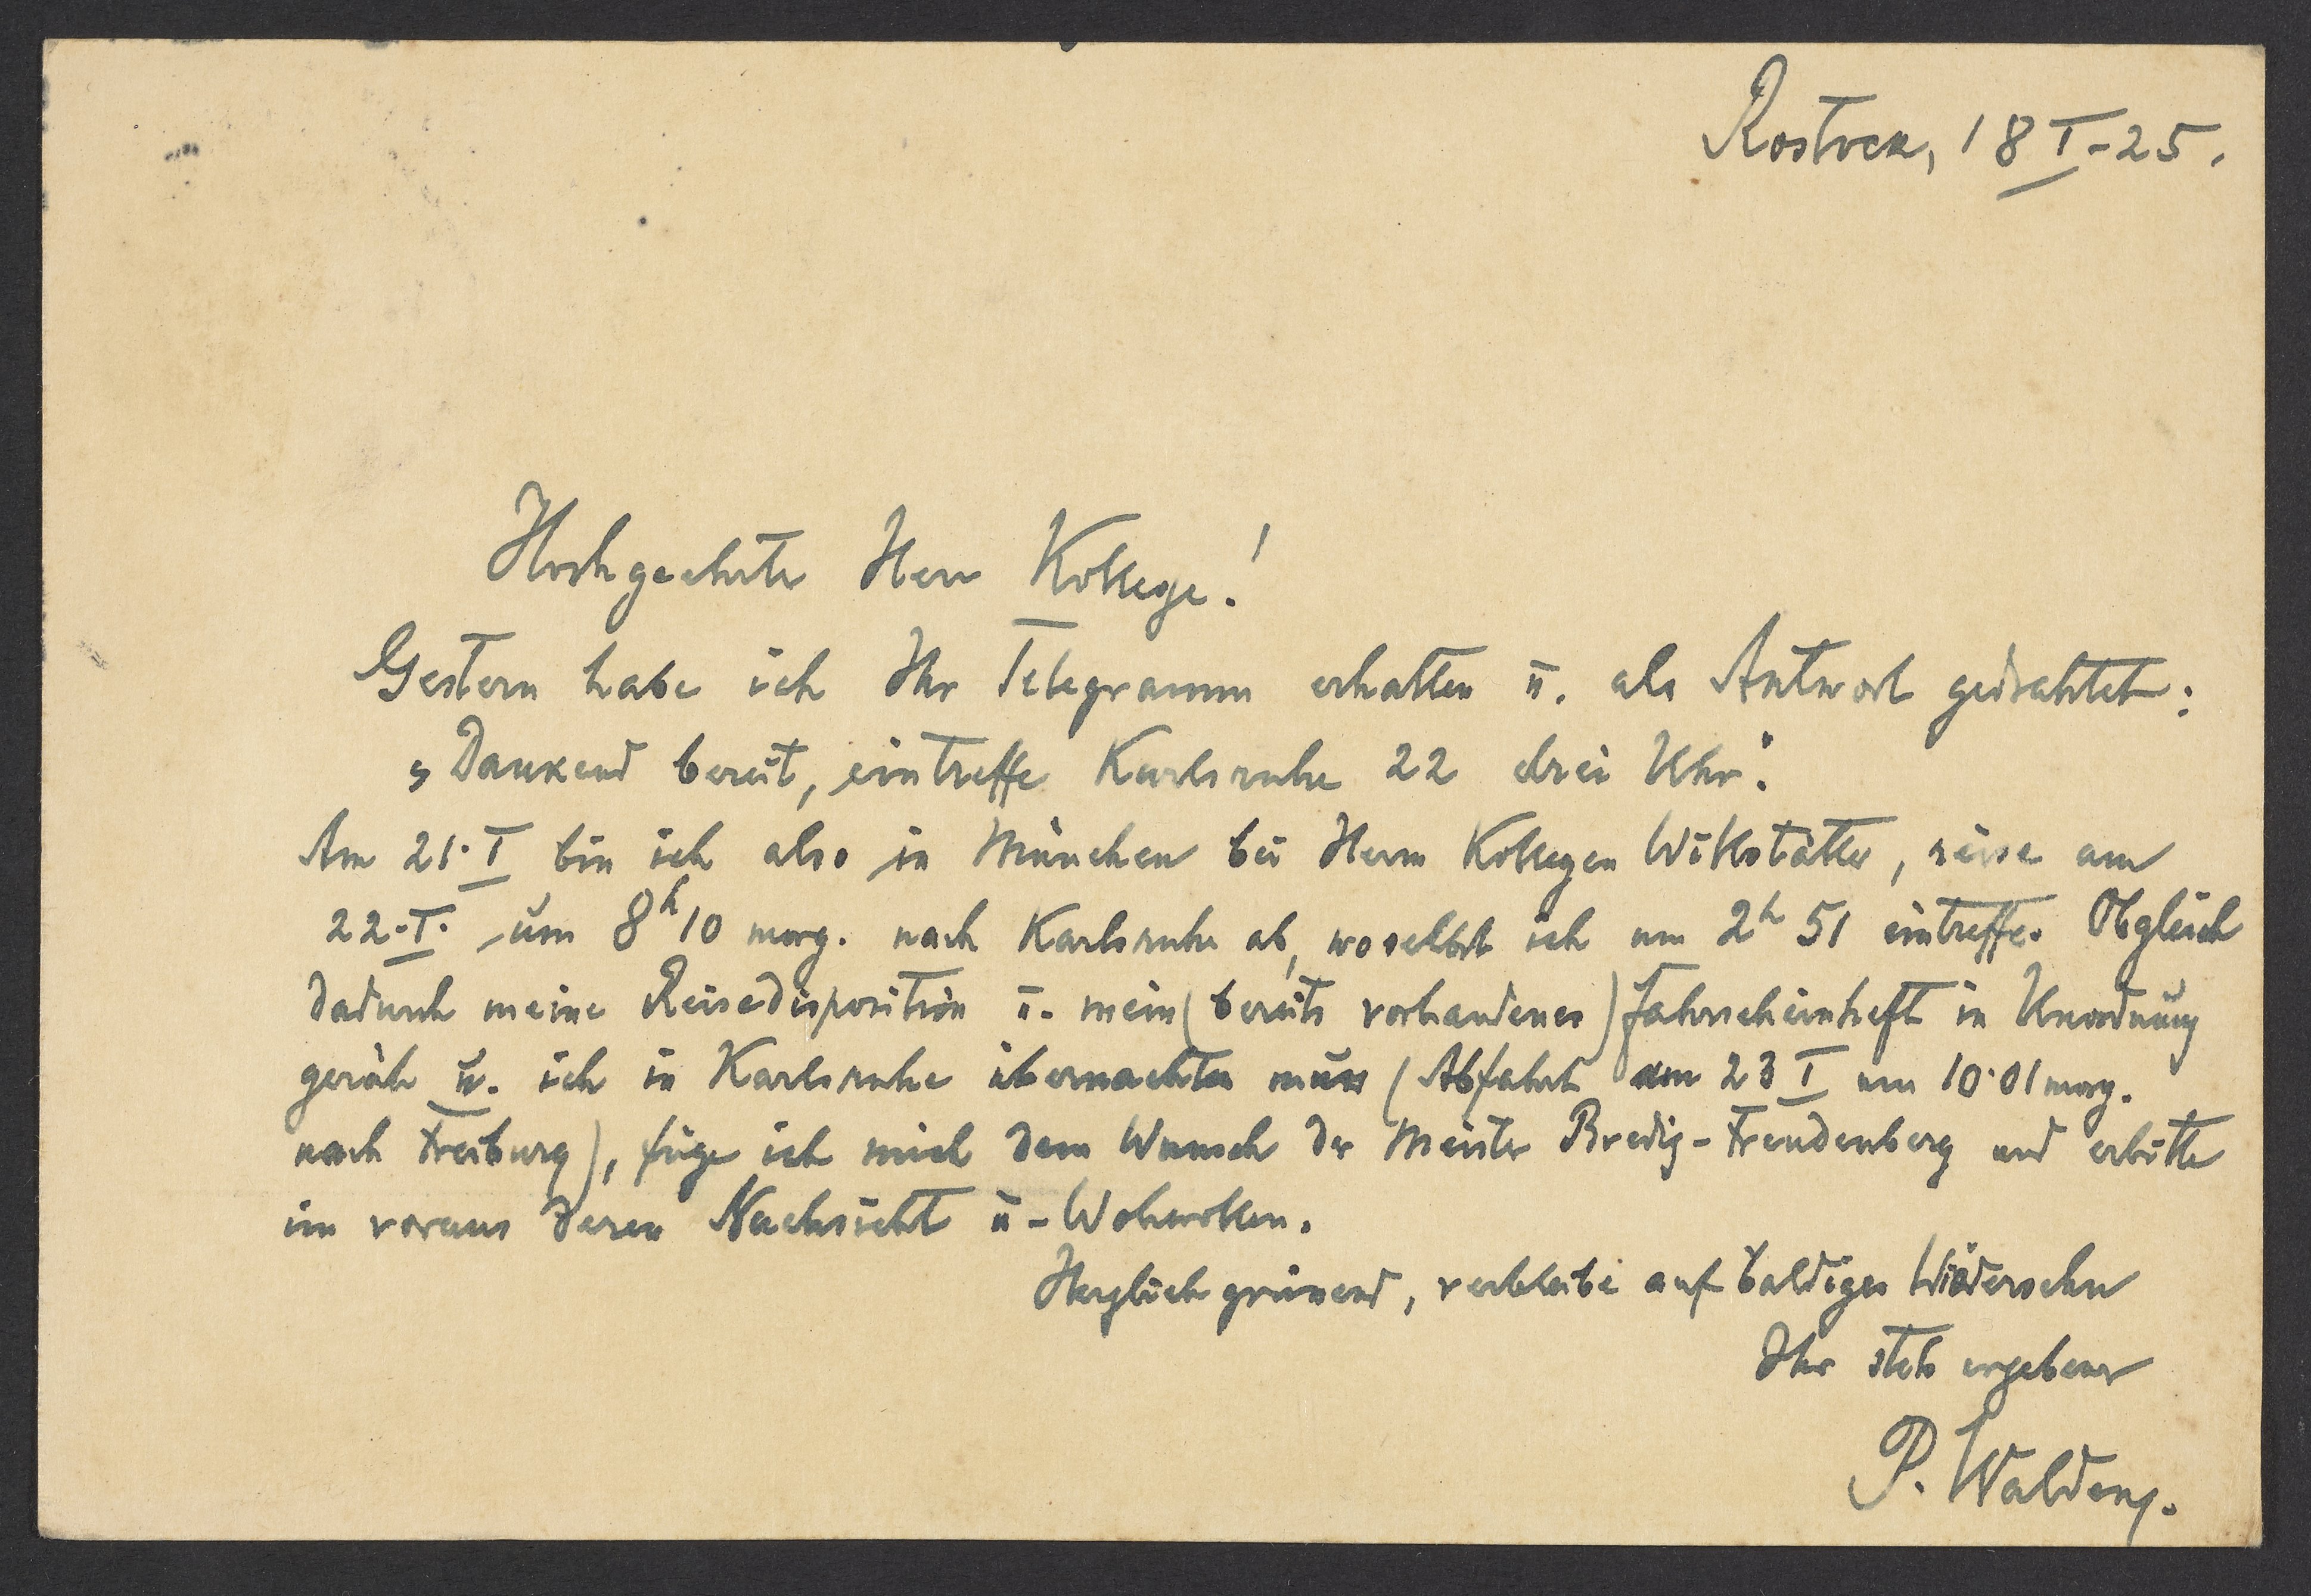 Rostock, 18 I-25.
Hochgeehrter Herr Kollege!
Gestern habe ich Ihr Telegramm erhalten u. als Antwort gedrahtet:
„Dankend bereit, eintreffe Karlsruhe 22 drei Uhr".
Am 21.I bin ich also in München bei Herrn Kollegen Willstätter, reise am
22.I. um 8h10 morg. nach Karlsruhe ab, woselbst ich um 2h 51 eintreffe. Obgleich
dadurch meine Reisedisposition u. mein (bereits vorhandenes) Fahrscheinheft in Unordnung
gerät u. ich in Karlsruhe übernachten muss (Abfahrt am 23 I um 10.01 morg.
nach Freiburg), füge ich mich dem Wunsch der Meister Bredig-Freudenberg und erbitte
im voraus deren Nachsicht u-Wohwollen.
Herzlich grüssend, verbleibe auf baldiges Wiedersehn
Ihr stets ergebener
P. Walden.